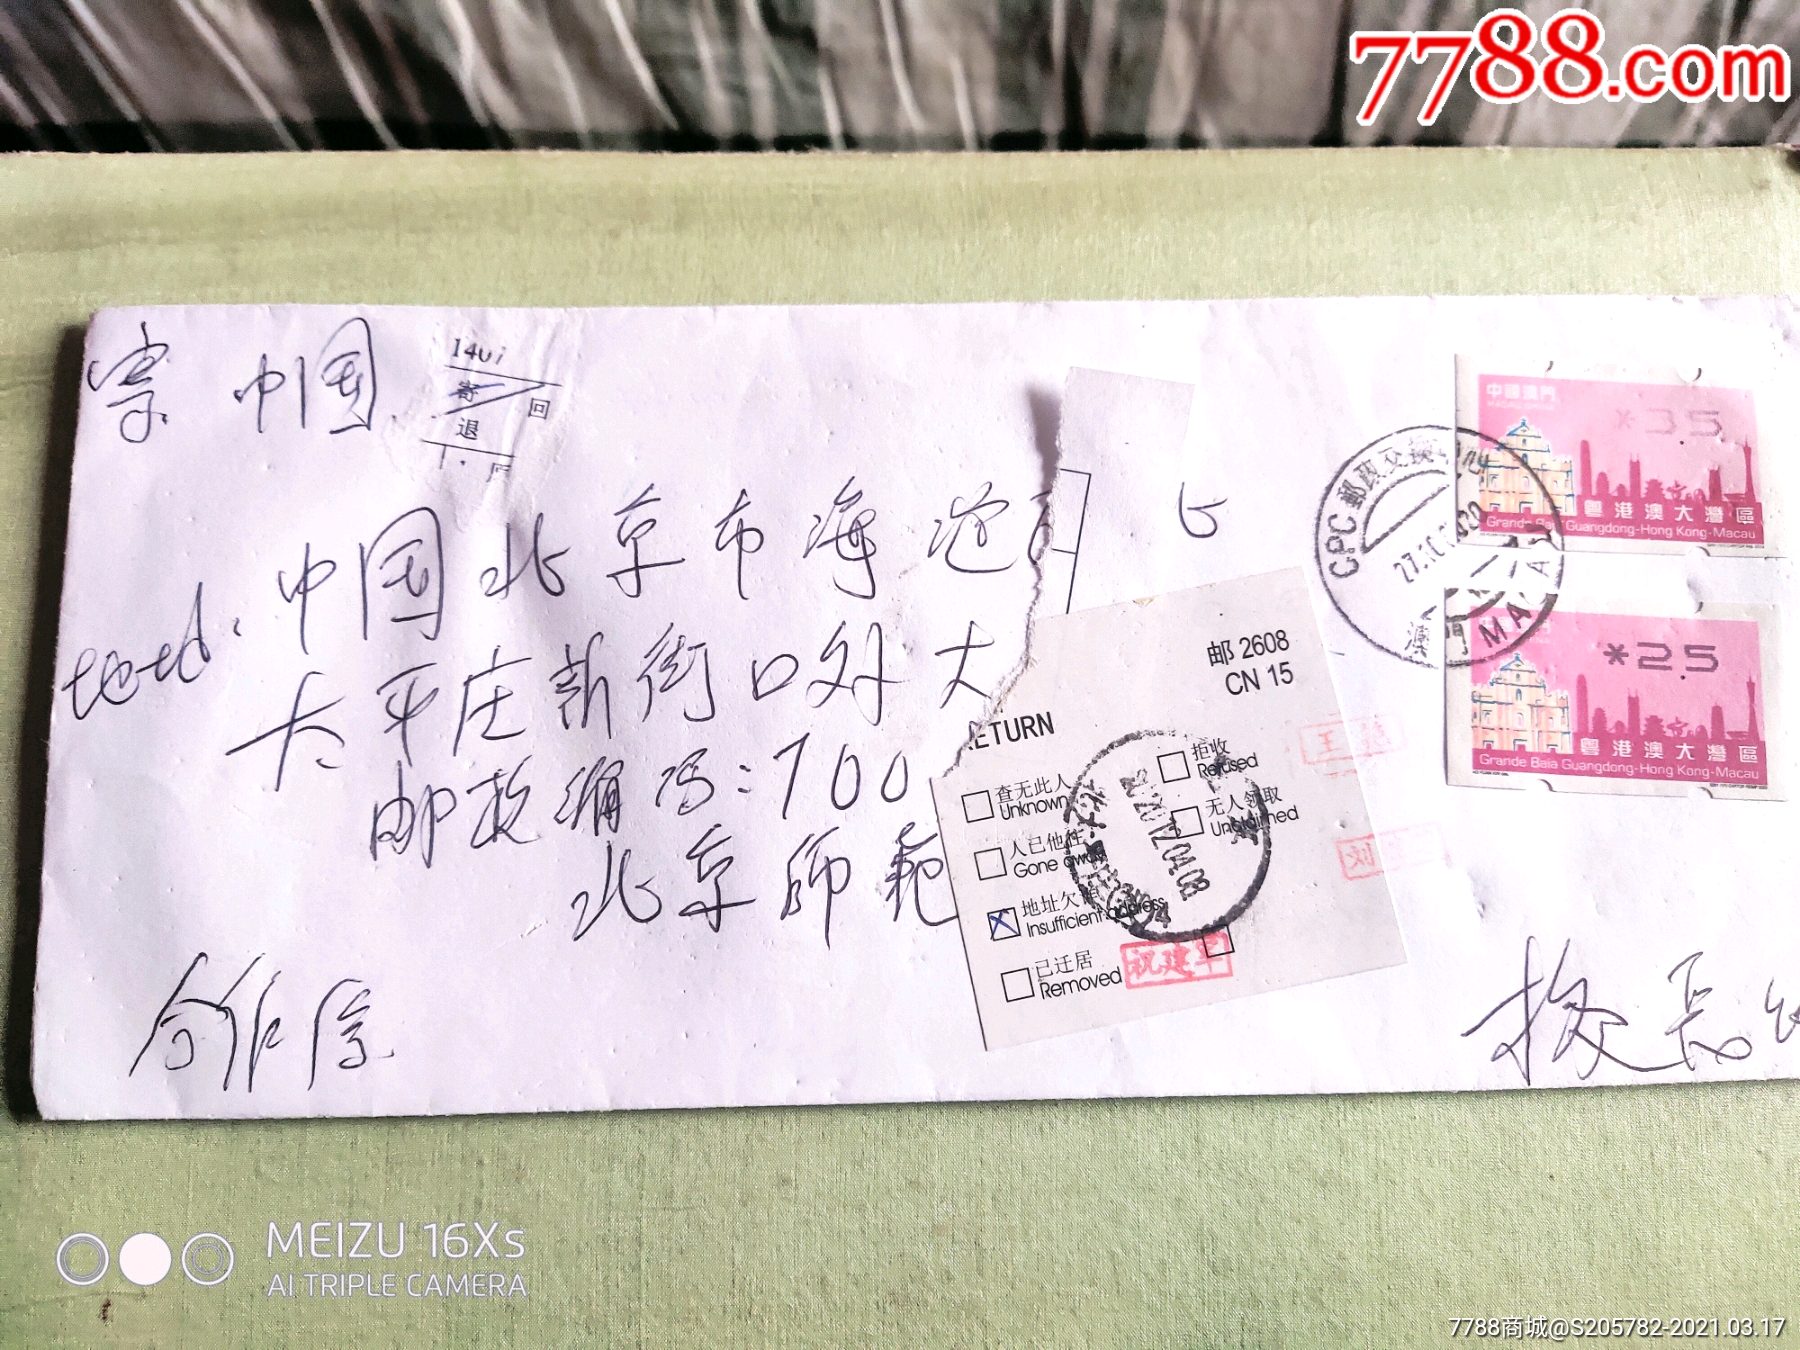 7788.com
寄 中国
1401
寄
回
退
中國澳門
*35
粤港澳大灣區
Grande Baía Guangdong-Hong Kong-Macau
CPC 邮政交换
27.10.2020
澳門 MACAU
地址.中国北京市海淀
太平庄新街口外大
邮政编码:100
北京师范
*25
粤港澳大灣區
Grande Baía Guangdong-Hong Kong-Macau
邮 2608
CN 15
ETURN
拒收
Refused
查无此人
Unknown
无人领取
Unclaimed
人已他往
Gone away
地址欠详
Insufficient address
已迁居
Removed
祝建军
2020.12.04.08
合作信
校长
MEIZU 16Xs
AI TRIPLE CAMERA
7788商城@S205782-2021.03.17